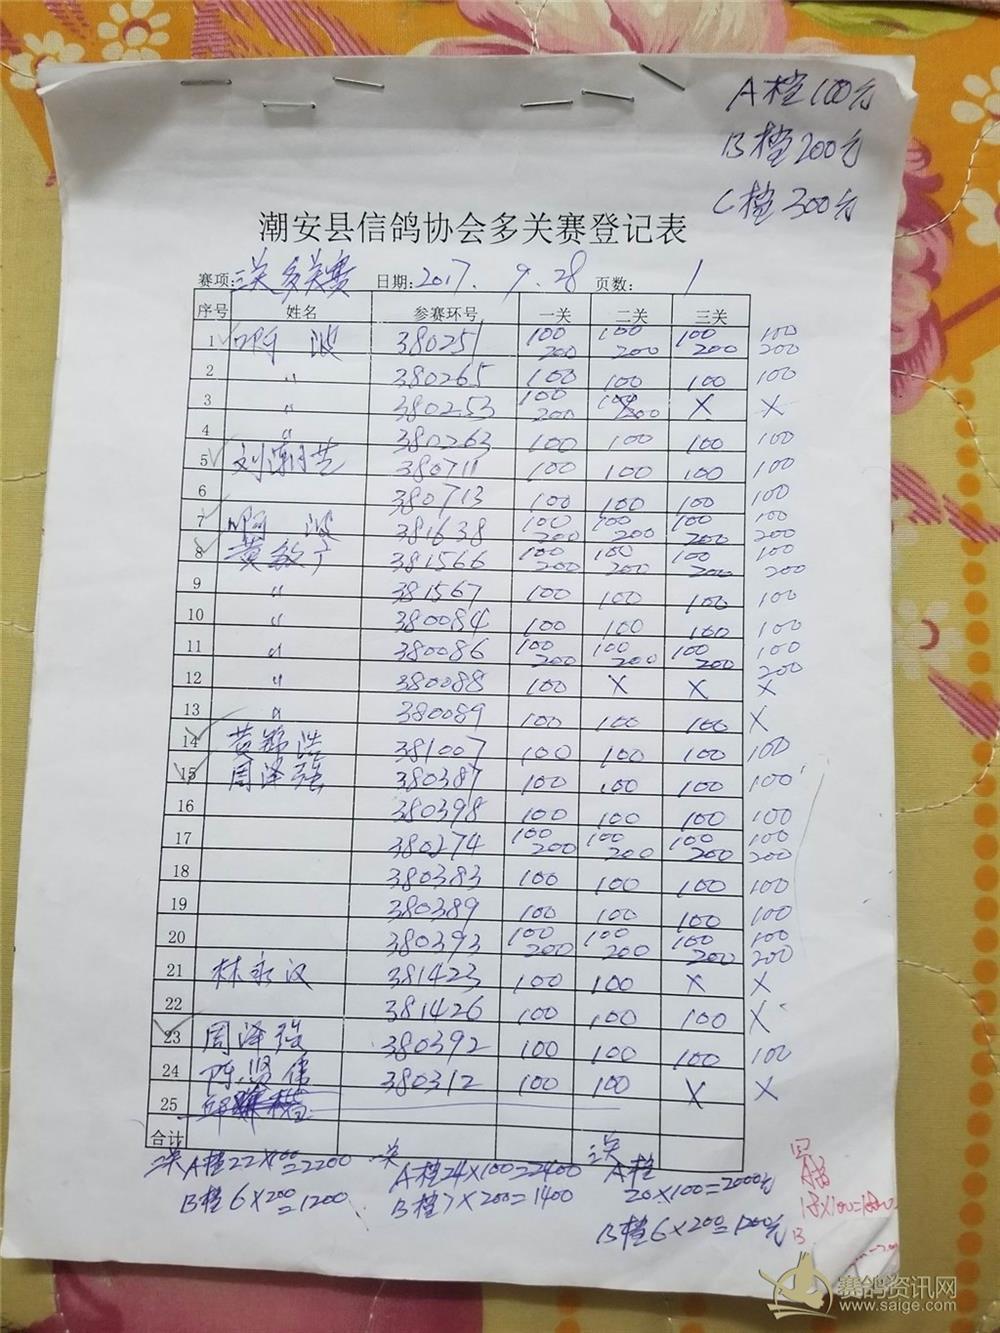 A档100元
B档200元
C档300元
潮安县信鸽协会多关赛登记表
赛项:三关多关赛 日期:2017.9.28 页数: 1
序号 姓名 参赛环号 一关 二关 三关
1 波 380251 100 200 100 200 100 200 100 200
2 〃 380265 100 100 100 100
3 〃 380253 100 200 100 200 X X X
4 〃 380263 100 100 100 100
5 刘 380711 100 100 100 100
6 380713 100 100 100 100
7 波 381638 100 200 100 200 100 200 100 200
8 黄 381566 100 200 100 200 100 200 100 200
9 〃 381567 100 100 100 100
10 〃 380084 100 100 100 100
11 〃 380086 100 200 100 200 100 200 100 200
12 〃 380088 100 X X X
13 〃 380089 100 100 100 X
14 黄 浩 381007 100 100 100 100
15 周泽强 380387 100 100 100 100
16 380398 100 100 100 100
17 380274 100 200 100 200 100 200 100 200
18 380383 100 100 100 100
19 380389 100 100 100 100
20 380393 100 200 100 200 100 200 100 200
21 林永汉 381423 100 100 X X
22 381426 100 100 100 X
23 周泽强 380392 100 100 100 100
24 陈贤伟 380312 100 100 X X
25
合计
二关 A档22X100=2200 一关 A档24X100=2400 三关 A档
20X100=2000元
B档6X200=1200 B档7X200=1400
B档6X200=1200元
B
赛鸽资讯网
www.saige.com